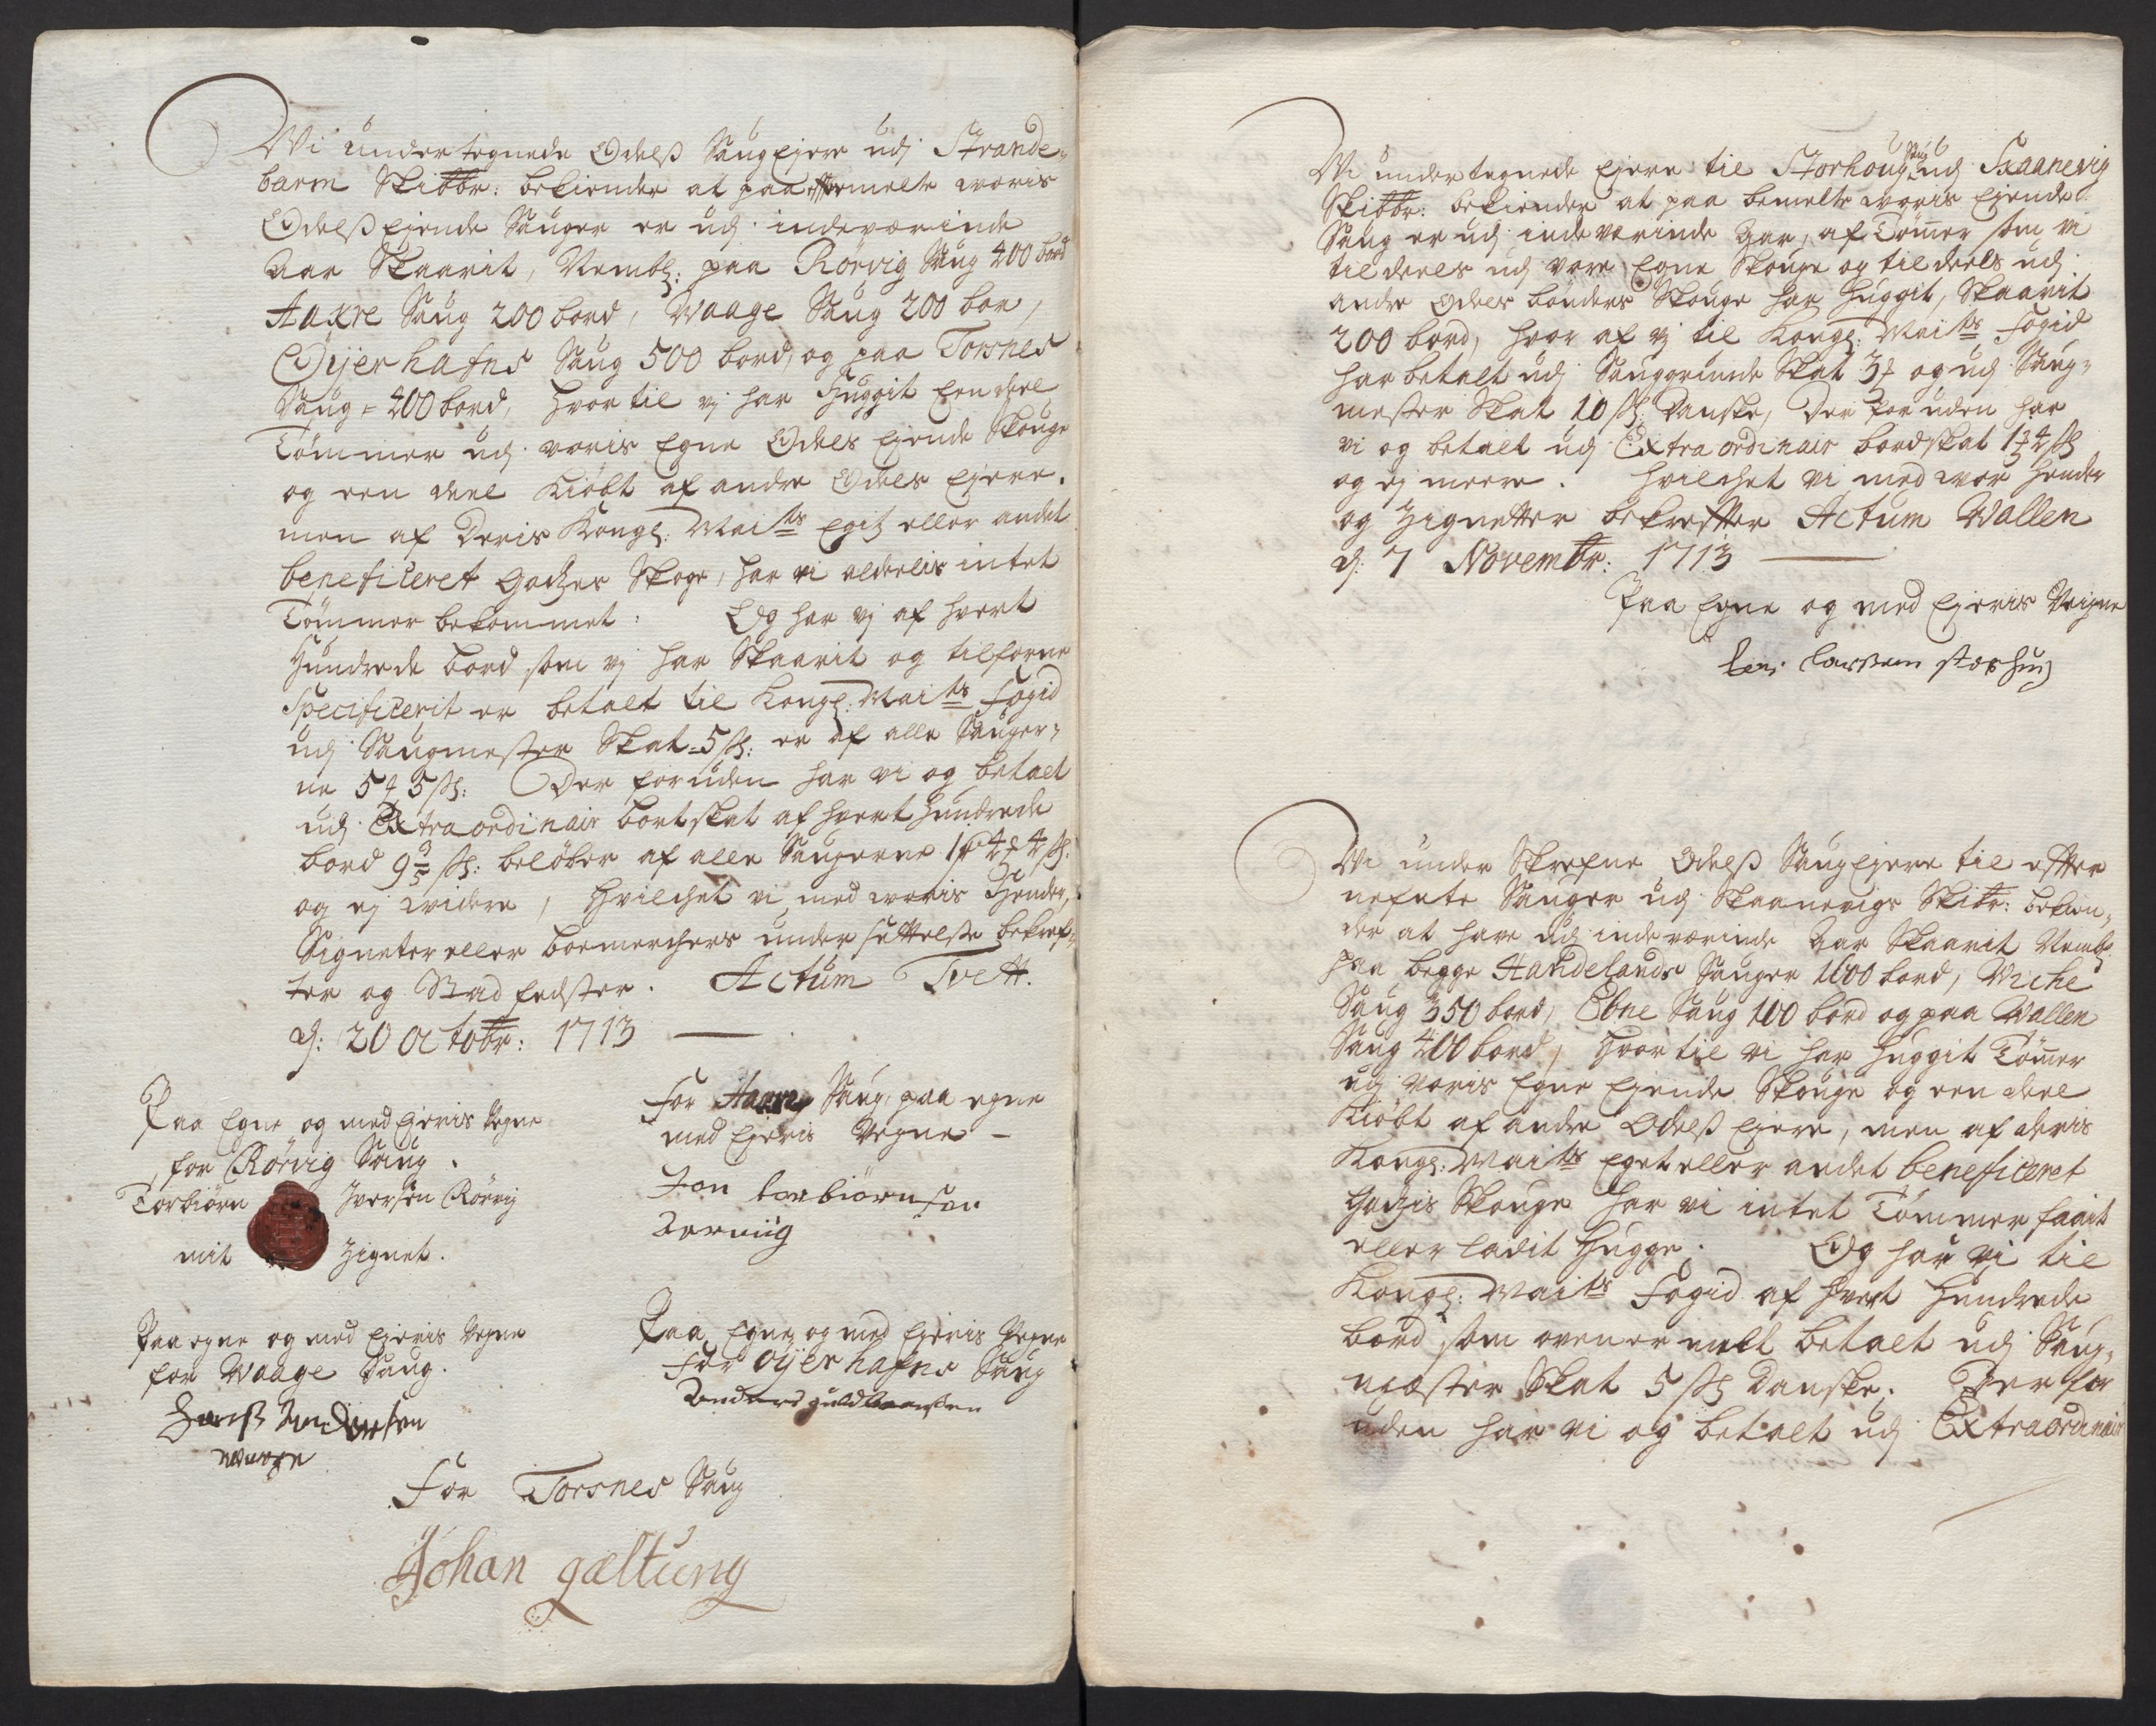 Wi under tegnede Odelß Saugejere udj Strande-
barm Skibbr: bekiender at paa efftermelte woris
Odelß Ejende Sauger er udj indeværinde
Aar Skaarit, Nembl: paa Rörvig Saug 400 bord
Aakre Saug 200 bord, Waage Saug 200 bor,
Öijerhafns Saug 500 bord, og paa Torsnes
Saug = 400 bord, Hvor til vj har Huggit Een deel
Tömmer udj voris Egne Odels Ejende Skouge
og een deel Kiöbt af andre Odels Ejere.
men af Deris Kongl: Maits Egit eller andet
beneficeret Godtzes Skoge, har vi alderlis intet
Tömmer bekommet: Og har vj af hvert
Hundrede bord som vj har Skaarit og tilforne
Specificerit er betalt til Kongl: Maits Fogid
udj Saugmester Skat = 5 ß: er af alle Sauger-
ne 5 5 ß: Der foruden har vi og betalt
udj Extraordinair bortskat af hvert Hundrede
bord 9 3/5 ß: belöber af alle Saugerne 4 ß:
og ej widere, Hvilchet vi med woris Hender,
Signeter eller boemerchers under settelße bekref-
ter og Stadfedster. Actum Tvett.
dj: 20 Octobr: 1713
Paa Egne og med Ejeris Vegne
for Rörvig Saug.
Torbiörn Iversen Rörvig
mit Zignet.
For Saug, paa egne
med Ejeris Vegne –
Jon torbiörnsen
Paa egne og med Ejeris Vegne
for Waage Saug.
Hanß Andersen
waage
Paa Egne og med Ejeris Vegne
For Öijerhafns Saug
Anders guldbransen
For Torsnes Saug
Johan gæltung
Wi undertegnede Ejere til Storhoug Saug udj Skaanevig
Skibbr: bekiender at paa bemelte woris Ejende
Saug er udj indeværinde Aar, af Tömer som vi
til deels udj vore Egne Skouge og til deels udj
andre Odels bönders Skouge har Huggit, Skaarit
200 bord, hvor af vj til Kongl: Maits Fogid
har betalt udj Sauggrunde Skat 3 og udj Saug-
mester Skat 10 ß: Danske, Der foruden har
vi og betalt udj Extraordinair bordskat 1 4 ß
og ej meere. Hvilchet vi med wor Hender
og Zignetter bekreffter Actum Wallen
dj: 7 Novembr: 1713
Paa Egne og med Ejeris Veigne
Larsen storhug
Wi under Skrefne Odelß Saugejere til effter
nefnte Sauger udj Skaanevigs Skibr: bekien-
der at have udj indeværinde Aar Skaarit Nembl:
paa begge Handelands Sauger 1600 bord, Wiche
Saug 350 bord, Ebne Saug 100 bord og paa Wallen
Saug 400 bord, Hvor til vi har Huggit Tömer
udj Voris Egne Ejende Skouge og een deel
Kiöbt af andre Odelß Ejere, men af deris
Kongl: Maits Eget eller andet beneficeret
Godtzis Skouge har vi intet Tömmer faait
eller ladit Hugge. Og har vj til
Kongl: Maits Fogid af hvert Hundrede
bord som oven er melt betalt udj Saug-
mæster Skat 5 ß Danske. Der for
uden har vi og betalt udj Extraordinair